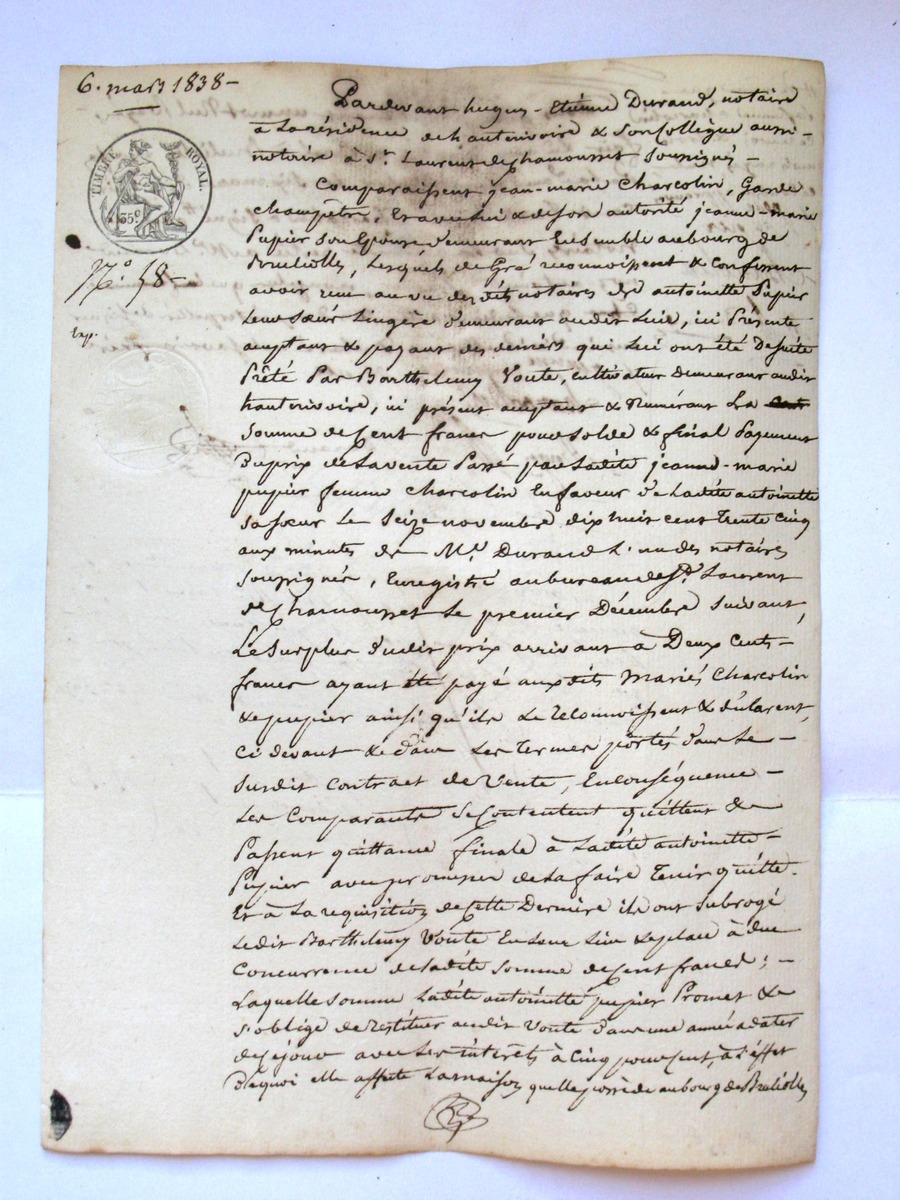 6. mars 1838 -
TIMBRE ROYAL.
35 c
N.o 58 -
Exp.
Pardevant hugues - Etiéne Durand, notaire
à La résidence de hauterivoire & Son Collègue aussi -
notaire à St. Laurent de Chamousset Soussignés -
Comparaissent jean-marie Charcotin, Garde
Champêtre, Et avec lui & de son autorité jeanne-marie
Pupier Son Epouse demeurant Ensemble au bourg de
Brulioles, Lesquels de Gré reconnoissent & Confessent
avoir reçu au vu des dits notaires de antoinette Pupier
Leur Sœur Lingère demeurant au dit Lieu, ici Présente
acceptant & payant des deniers qui Lui ont été De suite
Prêté Par Barthelemy Voute, cultivateur Demeurant audit
hauterivoire, ici présent acceptant & Numérant La
Somme de Cent francs pour Solde & final Payement
Du prix de La vente Passé par Ladite jeanne-marie
pupier femme Charcotin En faveur de Ladite antoinette
Sa sœur Le Seize novembre dix huit cent Trente Cinq
aux minutes de Me. Durand L'un des notaires
soussignés, Enregistré au bureau de St. Laurent
de Chamousset Le premier Décembre Suivant,
Le Surplus dudit prix arrivant à Deux Cents -
francs ayant été payé aux dits Mariés Charcotin
& pupier ainsi qu'ils Le reconnoissent & déclarent,
Ci devant & dans Les Termes portés dans Le -
Susdit Contract de Vente, En conséquence -
Les Comparants Se Contentent quittent &
Passent quittance finale à Ladite antoinette -
Pupier avec promesse de La faire Tenir quitte.
Et à La requisition de Cette Dernière ils ont Subrogé
Ledit Barthelemy Voute En Leur Lieu & place à due
Concurrence de Ladite Somme de Cent francs ; -
Laquelle Somme Ladite antoinette pupier Promet &
s'oblige de restituer audit Voute dans une année à dater
de Ce jour avec Les intérets à Cinq pour Cent, à L'effet
De quoi elle affecte La maison quelle possède au bourg de Brulioles